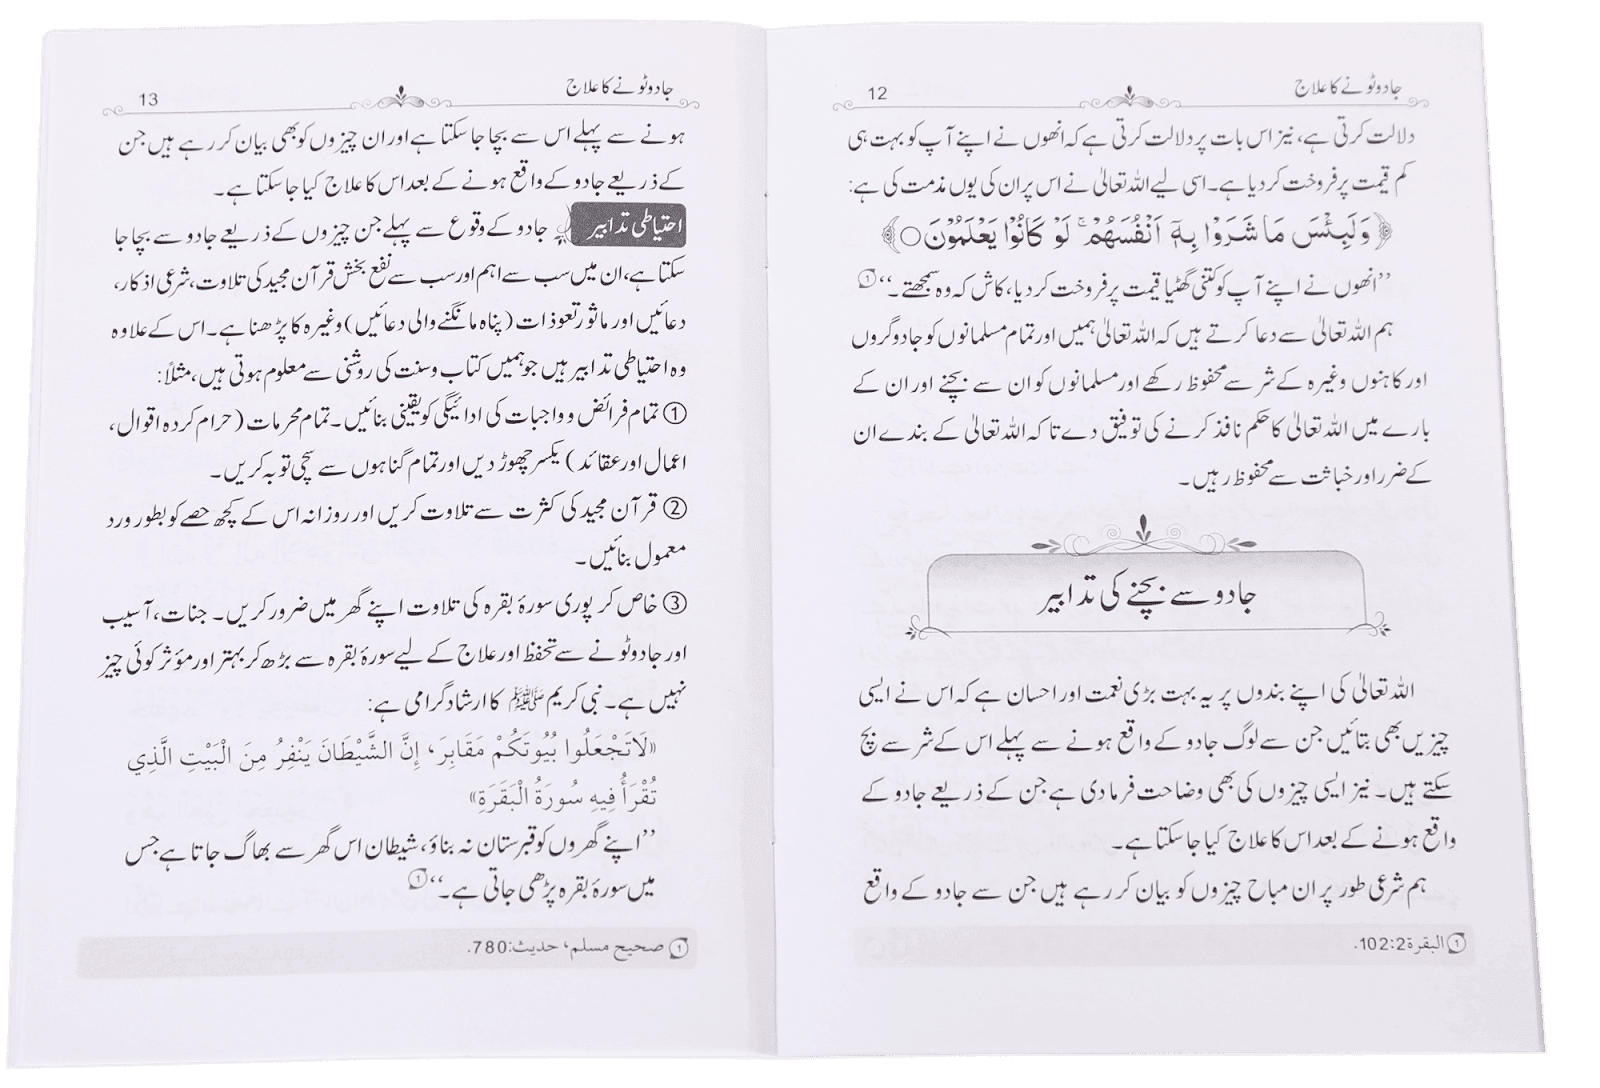 جادو ٹونے کا علاج
12
دلالت کرتی ہے، نیز اس بات پر دلالت کرتی ہے کہ انھوں نے اپنے آپ کو بہت ہی
کم قیمت پر فروخت کر دیا ہے۔ اسی لیے اللہ تعالیٰ نے اس پر ان کی یوں مذمت کی ہے:
﴿وَلَبِئْسَ مَا شَرَوْا بِهٖٓ اَنْفُسَهُمْ ۚ لَوْ كَانُوْا يَعْلَمُوْنَ○﴾
’’انھوں نے اپنے آپ کو کتنی گھٹیا قیمت پر فروخت کر دیا، کاش کہ وہ سمجھتے۔‘‘①
ہم اللہ تعالیٰ سے دعا کرتے ہیں کہ اللہ تعالیٰ ہمیں اور تمام مسلمانوں کو جادوگروں
اور کاہنوں وغیرہ کے شر سے محفوظ رکھے اور مسلمانوں کو ان سے بچنے اور ان کے
بارے میں اللہ تعالیٰ کا حکم نافذ کرنے کی توفیق دے تاکہ اللہ تعالیٰ کے بندے ان
کے ضرر اور خباثت سے محفوظ رہیں۔
جادو سے بچنے کی تدابیر
اللہ تعالیٰ کی اپنے بندوں پر یہ بہت بڑی نعمت اور احسان ہے کہ اس نے ایسی
چیزیں بھی بتائیں جن سے لوگ جادو کے واقع ہونے سے پہلے اس کے شر سے بچ
سکتے ہیں۔ نیز ایسی چیزوں کی بھی وضاحت فرما دی ہے جن کے ذریعے جادو کے
واقع ہونے کے بعد اس کا علاج کیا جا سکتا ہے۔
ہم شرعی طور پر ان مباح چیزوں کو بیان کر رہے ہیں جن سے جادو کے واقع
① البقرة 2:102.
جادو ٹونے کا علاج
13
ہونے سے پہلے اس سے بچا جا سکتا ہے اور ان چیزوں کو بھی بیان کر رہے ہیں جن
کے ذریعے جادو کے واقع ہونے کے بعد اس کا علاج کیا جا سکتا ہے۔
احتیاطی تدابیر جادو کے وقوع سے پہلے جن چیزوں کے ذریعے جادو سے بچا جا
سکتا ہے، ان میں سب سے اہم اور سب سے نفع بخش قرآن مجید کی تلاوت، شرعی اذکار،
دعائیں اور ماثور تعوذات (پناہ مانگنے والی دعائیں) وغیرہ کا پڑھنا ہے۔ اس کے علاوہ
وہ احتیاطی تدابیر ہیں جو ہمیں کتاب وسنت کی روشنی سے معلوم ہوتی ہیں، مثلاً:
① تمام فرائض و واجبات کی ادائیگی کو یقینی بنائیں۔ تمام محرمات (حرام کردہ اقوال،
اعمال اور عقائد) یکسر چھوڑ دیں اور تمام گناہوں سے سچی توبہ کریں۔
② قرآن مجید کی کثرت سے تلاوت کریں اور روزانہ اس کے کچھ حصے کو بطور ورد
معمول بنائیں۔
③ خاص کر پوری سورۂ بقرہ کی تلاوت اپنے گھر میں ضرور کریں۔ جنات، آسیب
اور جادو ٹونے سے تحفظ اور علاج کے لیے سورۂ بقرہ سے بڑھ کر بہتر اور مؤثر کوئی چیز
نہیں ہے۔ نبی کریم ﷺ کا ارشاد گرامی ہے:
«لَاتَجْعَلُوا بُيُوتَكُمْ مَقَابِرَ، إِنَّ الشَّيْطَانَ يَنْفِرُ مِنَ الْبَيْتِ الَّذِي
تُقْرَأُ فِيهِ سُورَةُ الْبَقَرَةِ»
’’اپنے گھروں کو قبرستان نہ بناؤ، شیطان اس گھر سے بھاگ جاتا ہے جس
میں سورۂ بقرہ پڑھی جاتی ہے۔‘‘①
① صحيح مسلم، حديث:780.